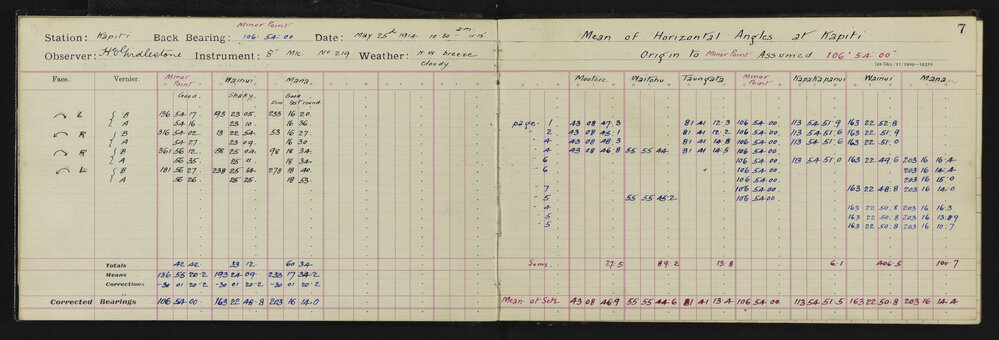 Minor Point
Station: Kapiti Back Bearing: 106·54·00 Date: May 25th 1914 10·30 a.m. 11·15
Observer: Instrument: 8" Mic No 219 Weather: N.W breeze
cloudy
Face. Vernier. Minor Point Wainui Mana
Good. Shaky. Good
Dim last round
L B 136 54 17. 193 23 05. 233 16 20.
A 54 16. 23 10. 16 36.
R B 316 54 02. 13 22 54. 53 16 27.
A 54 27. 23 09. 16 30.
R B 361 56 12. 58 25 04. 98 18 34.
A 56 35. 25 11. 18 34.
L B 181 56 27. 238 25 14. 278 18 40.
A 56 26. 25 25. 18 53.
Totals 42 42. 33 12. 60 34.
Means 136 55 20·2 193 24 09. 233 17 34·2
Corrections -30 01 20·2 -30 01 20·2 -30 01 20·2
Corrected Bearings 106 54 00. 163 22 48·8 203 16 14·0
7
Mean of Horizontal Angles at Kapiti
Origin to Minor Point Assumed 106° 54' 00"
Moutere Waitohu Taungata Minor Point Kapakapanui Wainui Mana
page 1 43 08 47·3 81 41 12·3 106 54 00. 113 54 51·9 163 22 52·8
" 2 43 08 45·1 81 41 12·2 106 54 00. 113 54 51·6 163 22 51·9
4 43 08 48·3 81 41 14·8 106 54 00. 113 54 51·6 163 22 51·0
4 43 08 46·8 55 55 44 81 41 14·5 106 54 00.
6 106 54 00. 113 54 51·0 163 22 49·6 203 16 16·4
6 106 54 00. 203 16 14·4
106 54 00. 203 16 15·0
7 106 54 00. 163 22 48·8 203 16 14·0
5 55 55 45·2 106 54 00.
4 163 22 50·8 203 16 16·3
5 163 22 50·8 203 16 13·89
5 163 22 50·8 203 16 10·7
Sums. 27·5 89·2 13·8 6·1 406·5 100·7
Mean of Sets. 43 08 46·9 55 55 44·6 81 41 13·4 106 54 00 113 54 51·5 163 22 50·8 203 16 14·4